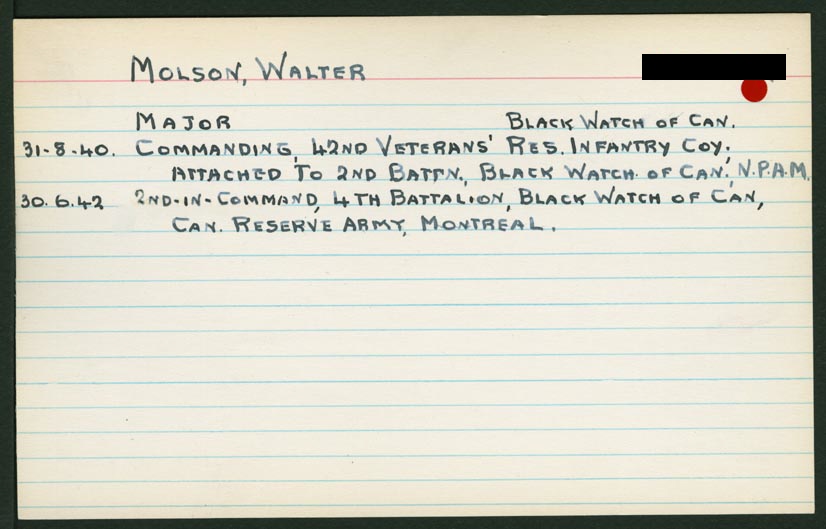 MOLSON, WALTER
MAJOR BLACK WATCH OF CAN.
31-8-40. COMMANDING, 42ND VETERANS' RES. INFANTRY COY.
ATTACHED TO 2ND BATT'N, BLACK WATCH OF CAN., N.P.A.M.
30.6.42 2ND-IN-COMMAND, 4TH BATTALION, BLACK WATCH OF CAN,
CAN. RESERVE ARMY, MONTREAL.